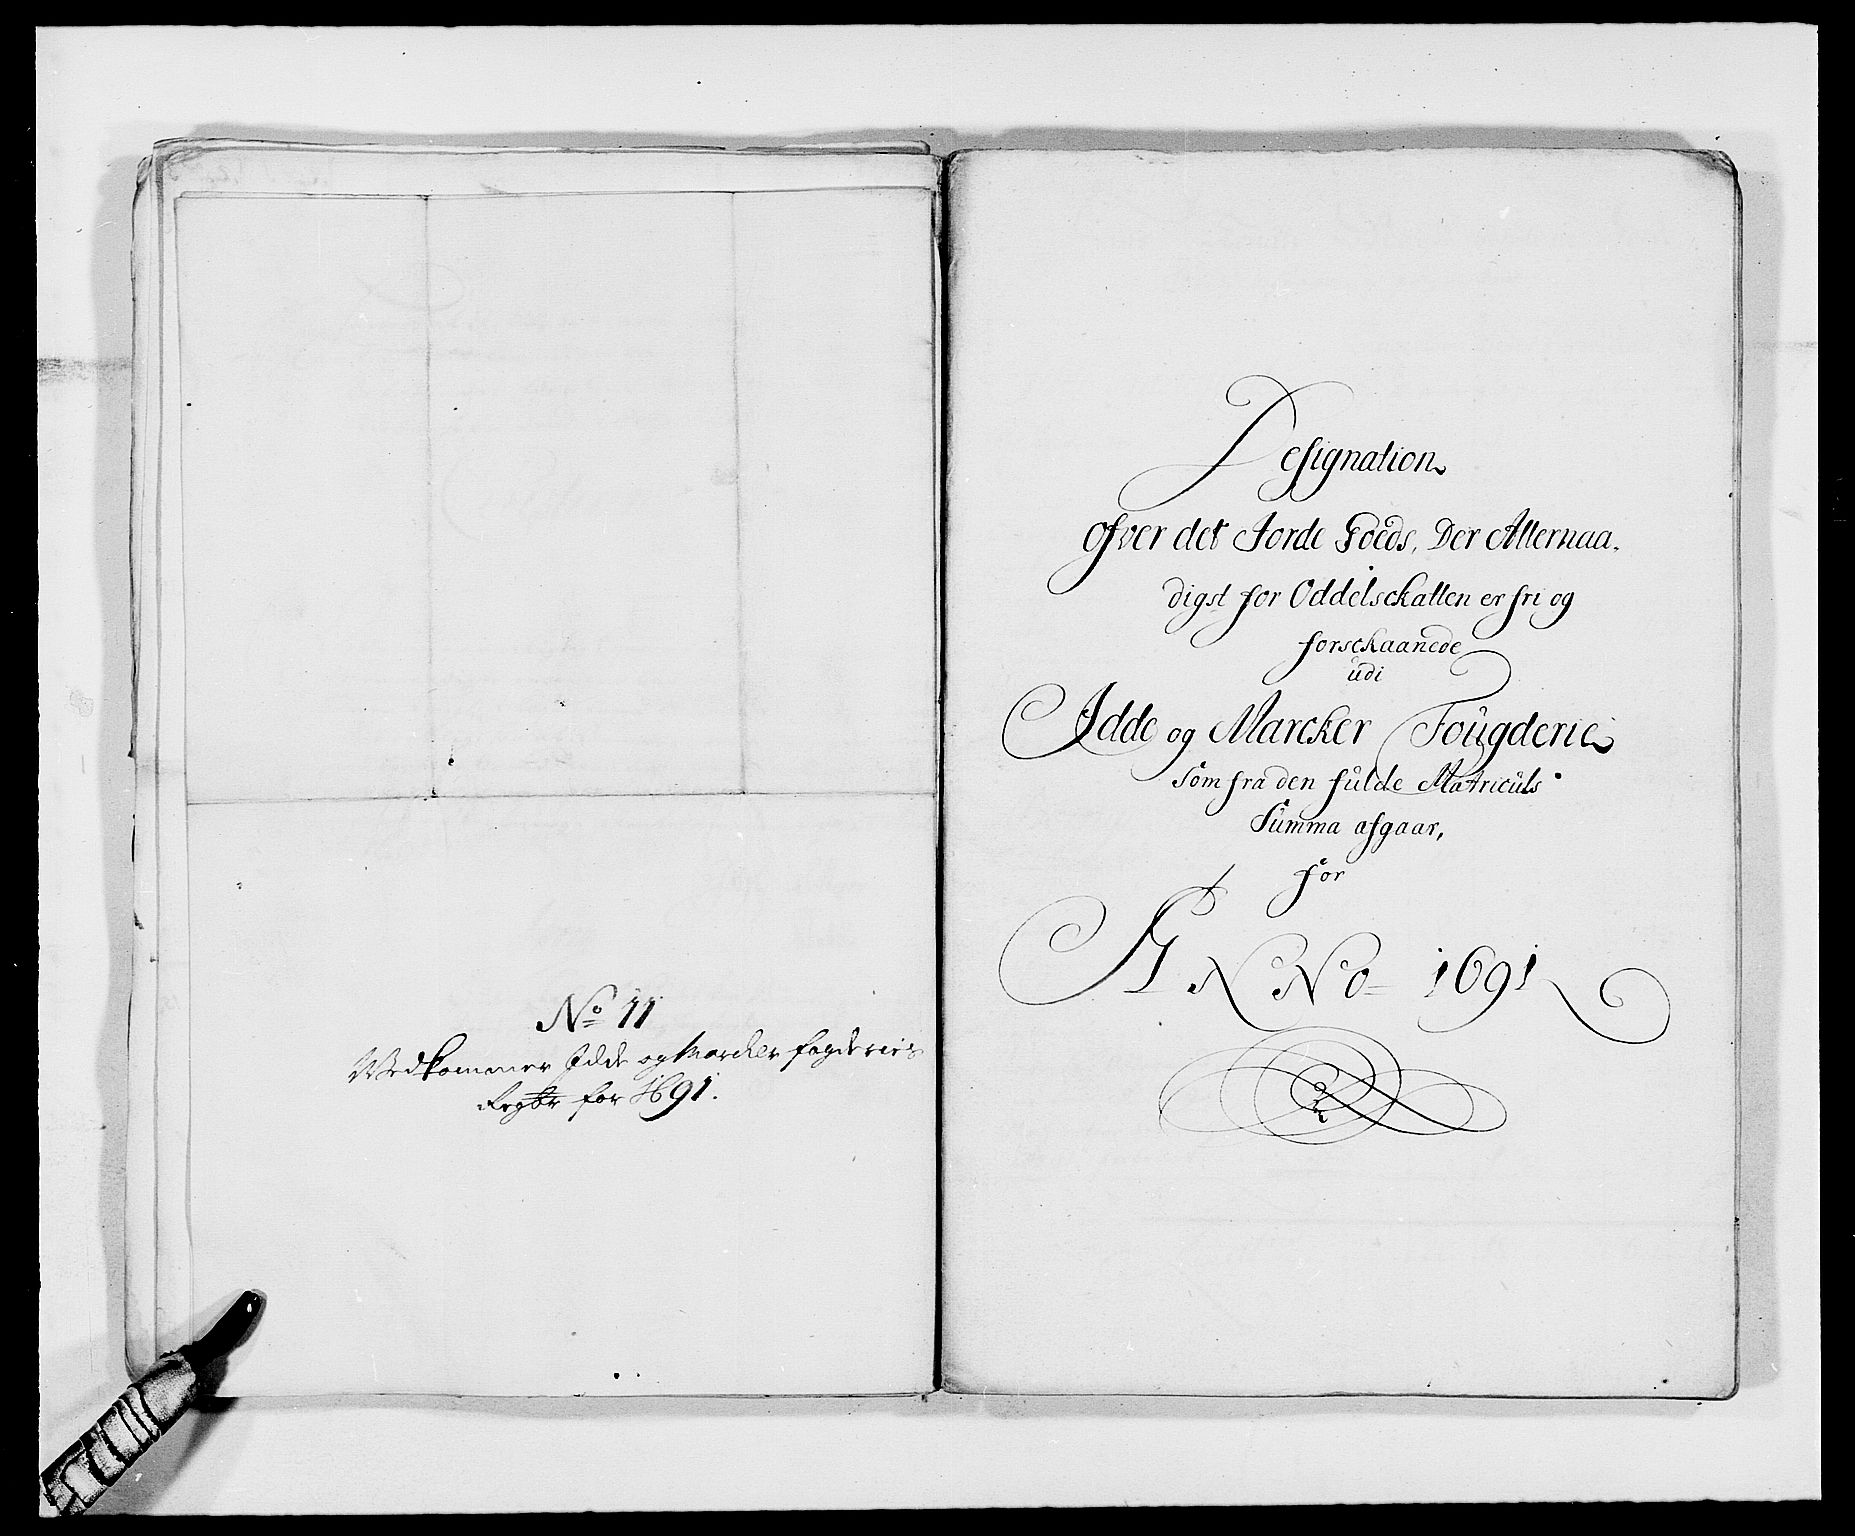 No 11
Vedkommer Idde og Marcker fogderies
Regbr for 1691.
Designation
ofver det Jorde Goeds, Der Allernaa,
digst for Oddelsckatten er fri og
forsckaanede
udi
Idde og Marcker Fougderie
Som fra den fulde Matriculs
Summa afgaar,
for
ANNo 1691